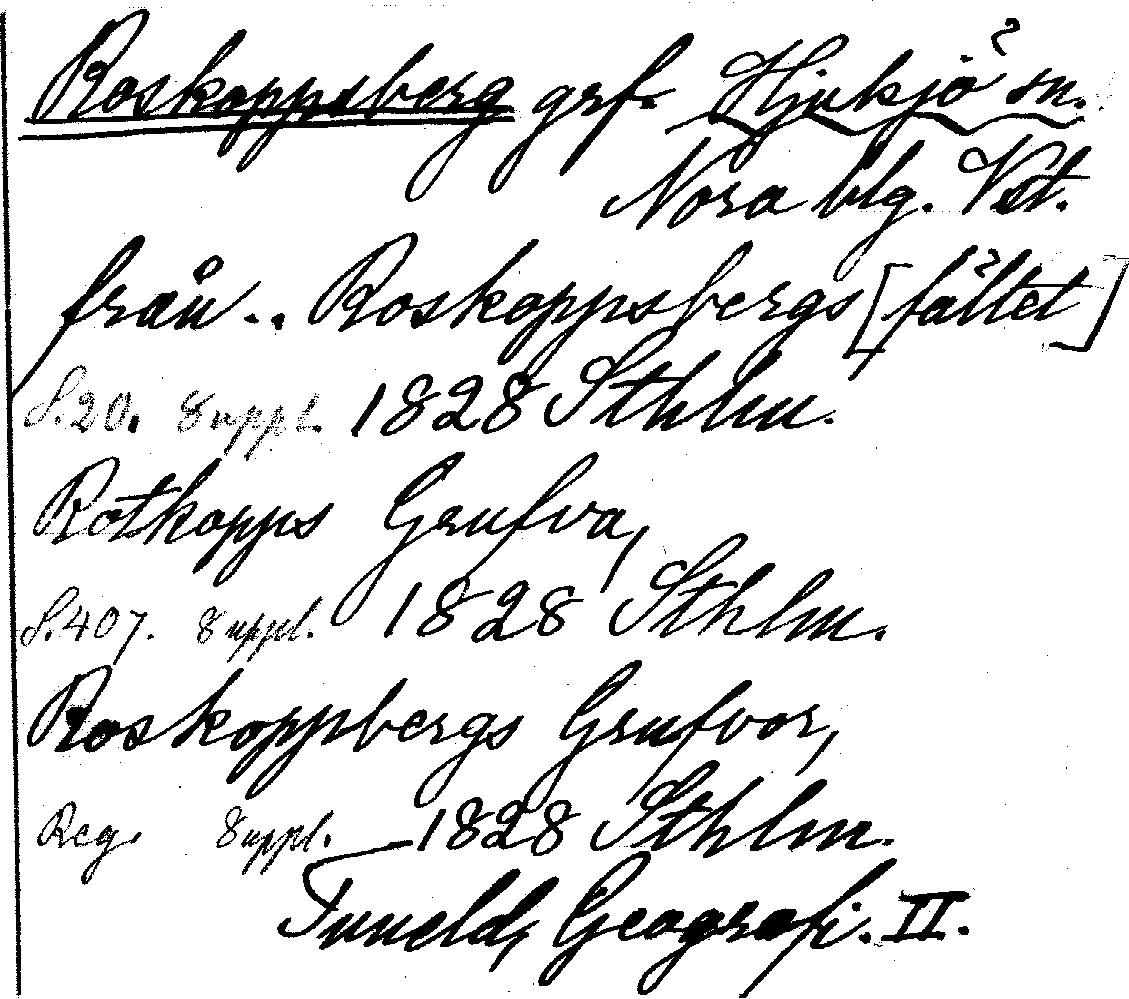 Roskoppsberg grf. Hjulsjö sn.
Nora blg. Vstm.
från .. Roskoppsbergs [fältet]
S.20. Suppl. 1828 Sthlm.
Rotkopps Grufva,
S.407. Suppl. 1828 Sthlm.
Roskoppbergs Grufvor,
Reg. Suppl. 1828 Sthlm.
Tuneld, Geografi. II.